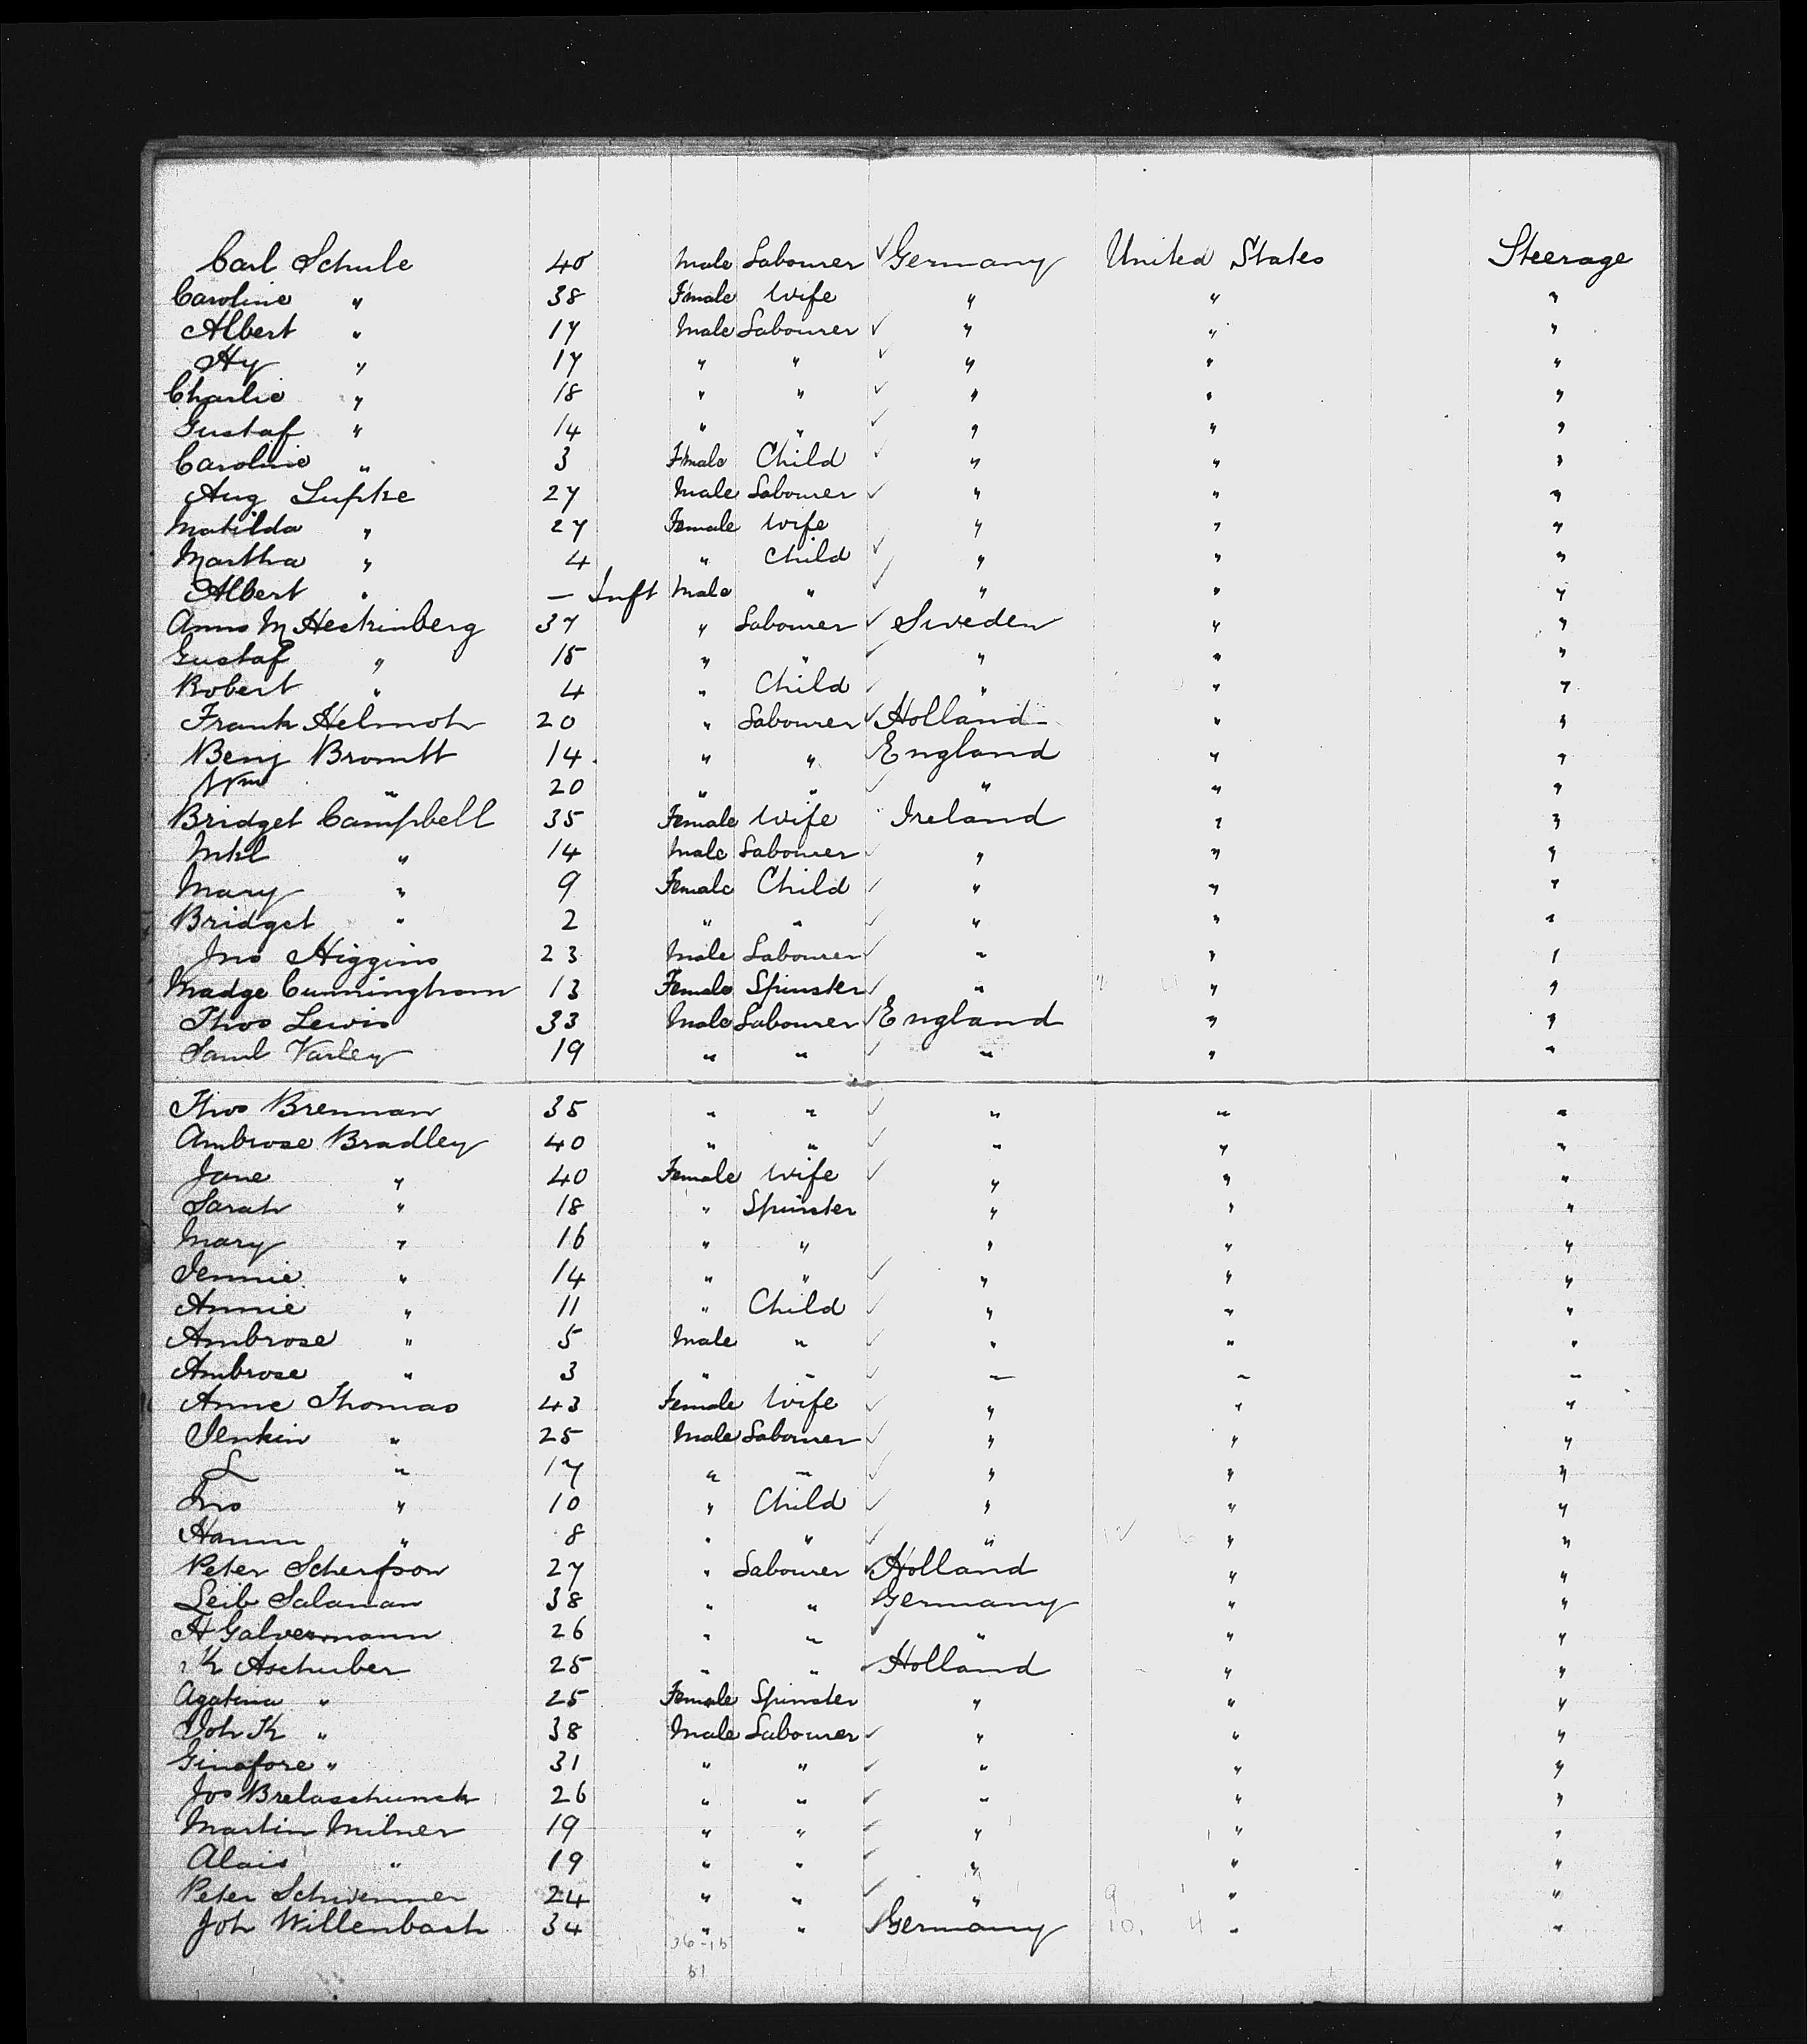 Carl Schule 40 Male Labourer ✓ Germany United States Steerage
Caroline " 38 Female Wife " " "
Albert " 17 Male Labourer ✓ " " "
Hy " 17 " " ✓ " " "
Charlie " 18 " " ✓ " " "
Gustaf " 14 " " ✓ " " "
Caroline " 3 Fmale Child ✓ " " "
Aug Lupke 27 Male Labourer ✓ " " "
Matilda " 27 Female Wife " " "
Martha " 4 " Child ✓ " " "
Albert " — Inft Male " ✓ " " "
Anno M Heckinberg 37 " Labourer ✓ Sweden " "
Gustaf " 15 " " ✓ " " "
Robert " 4 " Child ✓ " " "
Frank Helmoh 20 " Labourer ✓ Holland " "
Benj Bromtt 14 " " England " "
Wm " 20 " " ✓ " " "
Bridget Campbell 35 Female Wife Ireland " "
Mkl " 14 Male Labourer ✓ " " "
Mary " 9 Female Child ✓ " " "
Bridget " 2 " " ✓ " " "
Jno Higgins 23 Male Labourer ✓ " " "
Madge Cunningham 13 Female Spinster ✓ " " "
Thos Lewis 33 Male Labourer ✓ England " "
Saml Varley 19 " " ✓ " " "
Thos Brennan 35 " " ✓ " " "
Ambrose Bradley 40 " " ✓ " " "
Jane " 40 Female Wife ✓ " " "
Sarah " 18 " Spinster " " "
Mary " 16 " " " " "
Jennie " 14 " " ✓ " " "
Annie " 11 " Child ✓ " " "
Ambrose " 5 Male " ✓ " " "
Ambrose " 3 " " ✓ " " "
Anne Thomas 43 Female Wife ✓ " " "
Jenkin " 25 Male Labourer ✓ " " "
L " 17 " " ✓ " " "
Jno " 10 " Child ✓ " " "
Hanm " 8 " " ✓ " " "
Peter Scherfson 27 " Labourer ✓ Holland " "
Leib Salaman 38 " " Germany " "
H Galvermann 26 " " ✓ " " "
K Aschuber 25 " " ✓ Holland " "
Agatina " 25 Female Spinster " " "
Joh K " 38 Male Labourer ✓ " " "
Ginafore " 31 " " ✓ " " "
Jos 26 " " ✓ " " "
Martin Milner 19 " " ✓ " " "
Alais " 19 " " ✓ " " "
Peter Schwemmer 24 " " ✓ " " "
Joh Willenbach 34 " " ✓ Germany " "
36-15
51